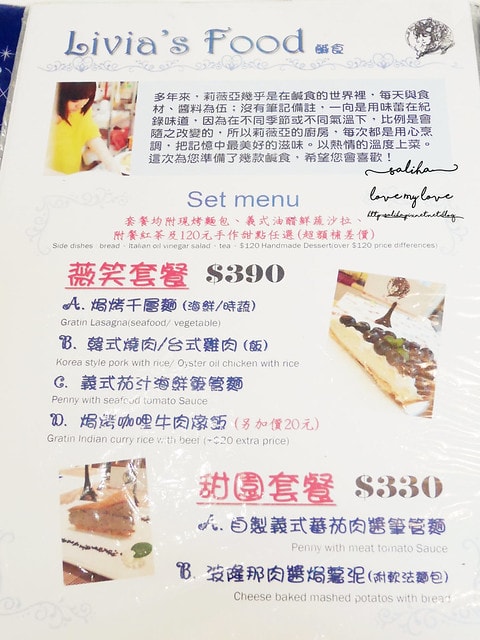 Livia's Food 鹹食
多年來，莉薇亞幾乎是在鹹食的世界裡，每天與食
材、醬料為伍；沒有筆記備註，一向是用味蕾在紀
錄味道，因為在不同季節或不同氣溫下，比例是會
隨之改變的，所以莉薇亞的廚房，每次都是用心烹
調，把記憶中最美好的滋味。以熱情的溫度上菜。
這次為您準備了幾款鹹食，希望您會喜歡！
saliha
love my love
Set menu
套餐均附現烤麵包、義式油醋鮮蔬沙拉、
附餐紅茶及120元手作甜點任選(超額補差價)
Side dishes：bread、Italian oil vinegar salad、tea、$120 Handmade Dessert(over $120 price differences)
薇笑套餐 $390
A. 焗烤千層麵 (海鮮/時蔬)
Gratin Lasagna(seafood/ vegetable)
B. 韓式燒肉/台式雞肉 (飯)
Korea style pork with rice/ Oyster oil chicken with rice
C. 義式茄汁海鮮筆管麵
Penny with seafood tomato Sauce
D. 焗烤咖哩牛肉燉飯 (多加價20元)
Gratin Indian curry rice with beef (+$20 extra price)
甜園套餐 $330
A. 自製義式蕃茄肉醬筆管麵
Penny with meat tomato Sauce
B. 波隆那肉醬焗薯泥(附軟法麵包)
Cheese baked mashed potatos with bread